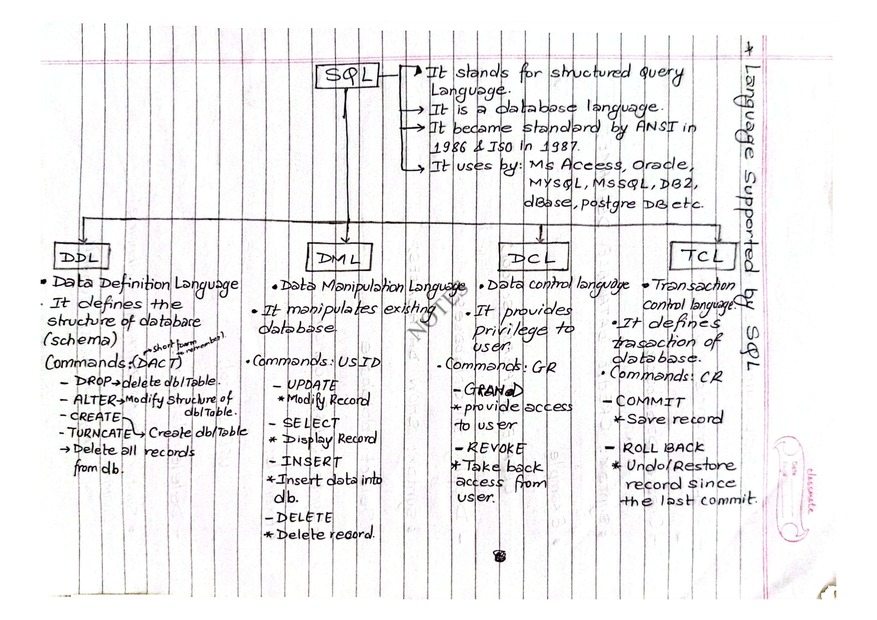 * Language Supported by SQL
SQL
It stands for structured Query
Language.
It is a database language.
It became standard by ANSI in
1986 & ISO in 1987.
It uses by: Ms Access, Oracle,
MYSQL, MSSQL, DB2,
dBase, postgre DB etc.
DDL
• Data Definition Language
• It defines the
structure of database
(schema)
Commands: (DACT)
→ short form
to remember).
- DROP → delete db/Table.
- ALTER → Modify Structure of
db/Table.
- CREATE
→ Create db/Table
- TURNCATE
→ Delete all records
from db.
DML
• Data Manipulation Language
• It manipulates existing
database
• Commands: USID
- UPDATE
* Modify Record
- SELECT
* Display Record
- INSERT
* Insert data into
db.
- DELETE
* Delete record.
DCL
• Data control language
• It provides
privilege to
user.
• Commands: GR
* provide access
to user
- REVOKE
* Take back
access from
user.
TCL
• Transaction
control language.
• It defines
trasaction of
database.
• Commands: CR
- COMMIT
* Save record
- ROLL BACK
* Undo/Restore
record since
the last commit.
NOTES
classmate